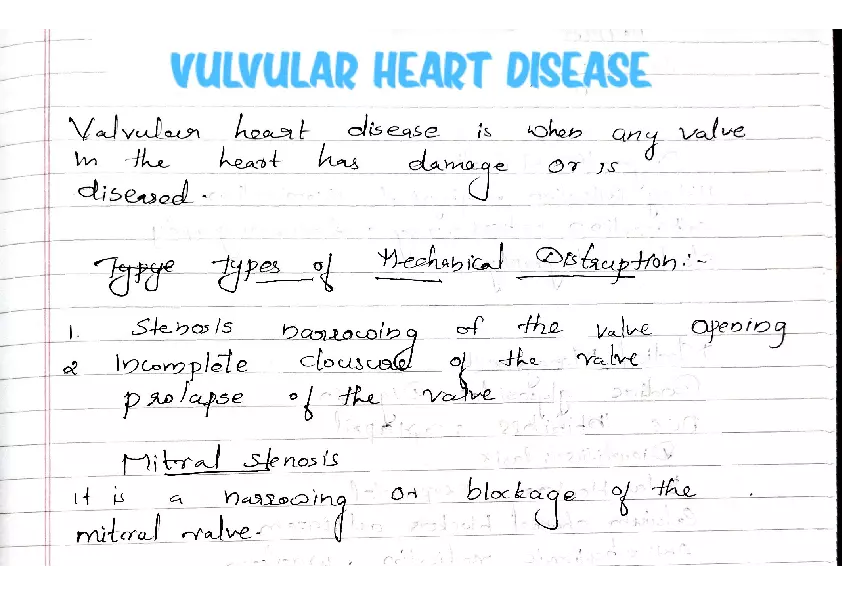 VULVULAR HEART DISEASE
Valvular heart disease is when any valve
in the heart has damage or is
diseased.
Types of Mechanical Distruption:-
1. Stenosis narrowing of the valve opening
2 Incomplete clousure of the valve
prolapse of the valve
Mitral stenosis
it is a narrowing or blockage of the
mitral valve.